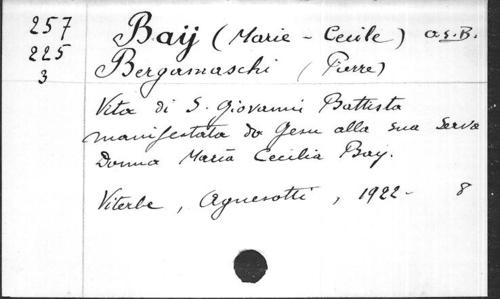 257 Baÿ (Marie - Cecile) o.s.B.
225 Bergamaschi (Pierre)
3
Vita di S. Giovanni Battista
manifestata da Gesu alla sua Serva
Donna Maria Cecilia Bay.
Viterbe, Agnesotti, 1922 - 8